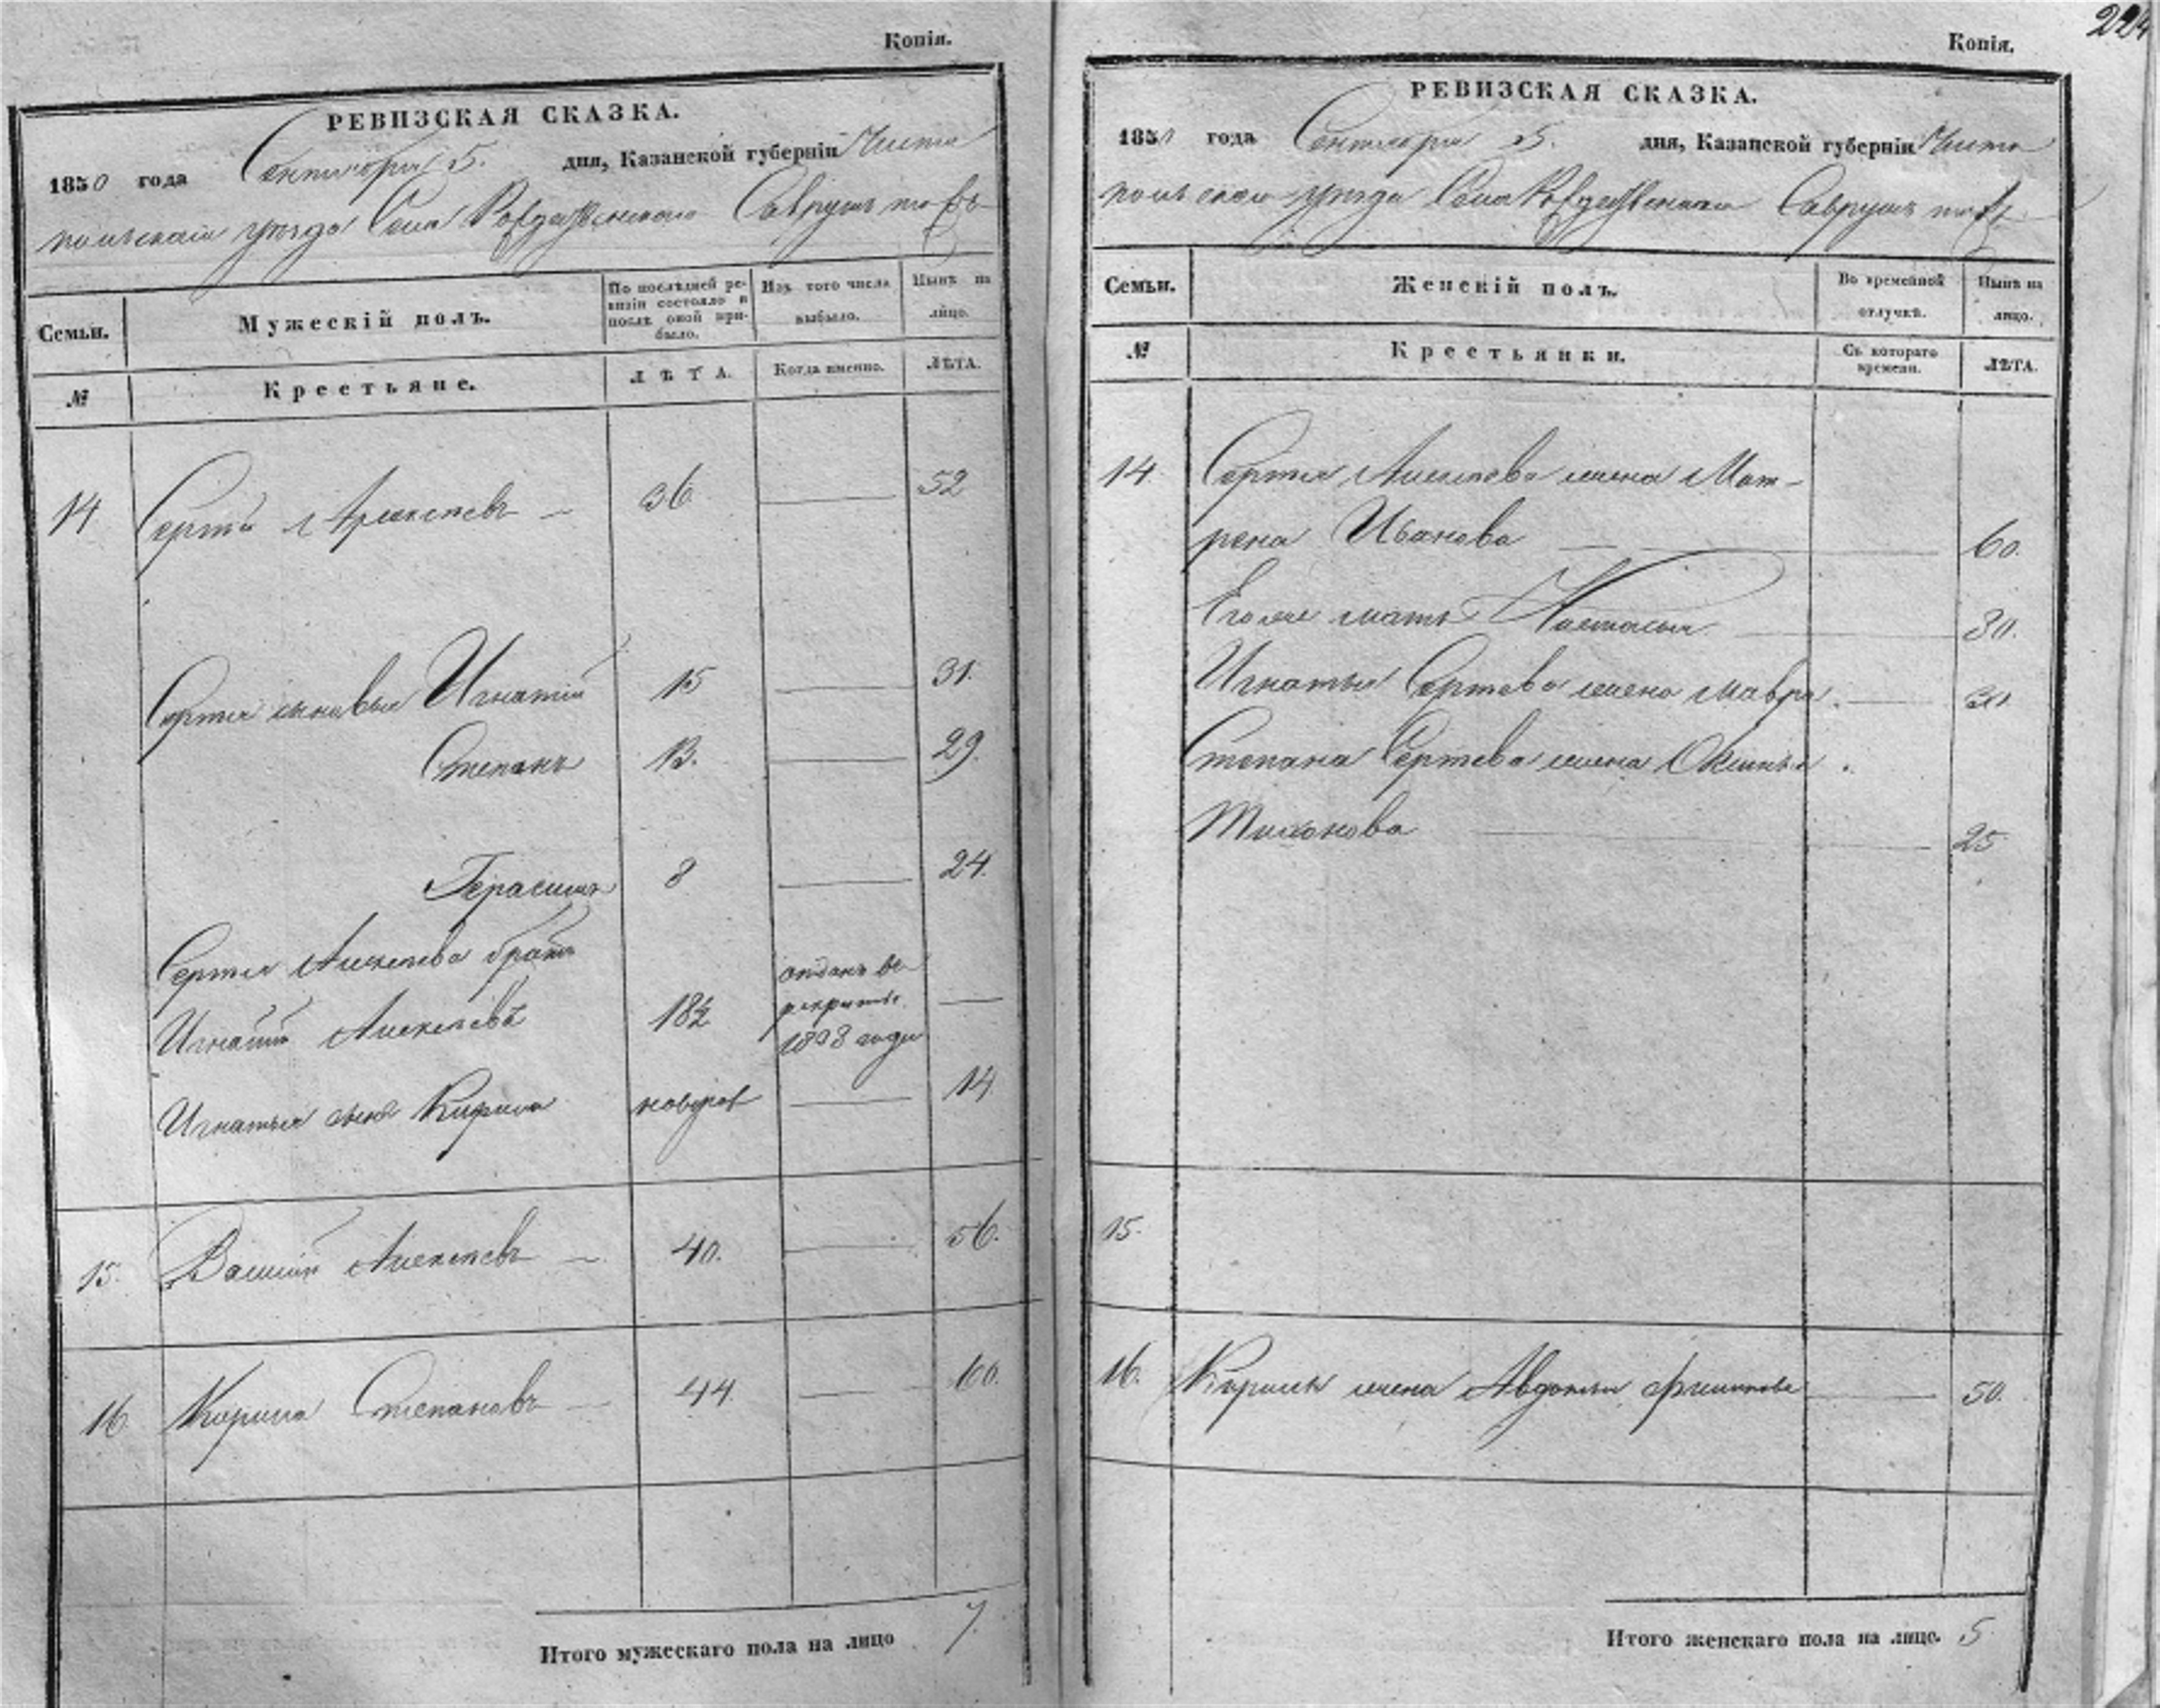 Копія.
РЕВИЗСКАЯ СКАЗКА.
1850 года Сентября 5. дня, Казанской губерніи Чисто
польскаго уѣзда Села Рождественскаго
Семьи.
Мужескій полъ.
По послѣдней ре-
визіи состояло и
послѣ оной при-
было.
Изъ того числа
выбыло.
Нынѣ на
лицо.
№
Крестьяне.
ЛѢТА.
Когда именно.
ЛѢТА.
14 Сергѣй Алексѣевъ — 36 52
Сергѣя сыновья Игнатій 15 31.
Степанъ 13. 29.
Герасимъ 8 24.
Сергѣя Алексѣева братъ
Игнатій Алексѣевъ 18½ отданъ въ
рекруты
годѣ
Игнатья сынъ Кирила новорож 14
15. Василій Алексѣевъ — 40. 56.
16 Кирила Степановъ — 44. 60.
Итого мужескаго пола на лицо 7.
224
Копія.
РЕВИЗСКАЯ СКАЗКА.
1850 года Сентября 5. дня, Казанской губерніи Чисто
польскаго уѣзда Села Рождественскаго
Семьи.
Женскій полъ.
Во временной
отлучкѣ.
Нынѣ на
лицо.
№
Крестьянки.
Съ котораго
времени.
ЛѢТА.
14. Сергѣя Алексѣева жена Мат-
рена Иванова 60.
Его же мать Настасья 80.
Игнатья Сергѣева жена Мавра. 30
Степана Сергѣева жена
Тихонова 25
15.
16. Кирилы жена Авдотья 50.
Итого женскаго пола на лицо. 5